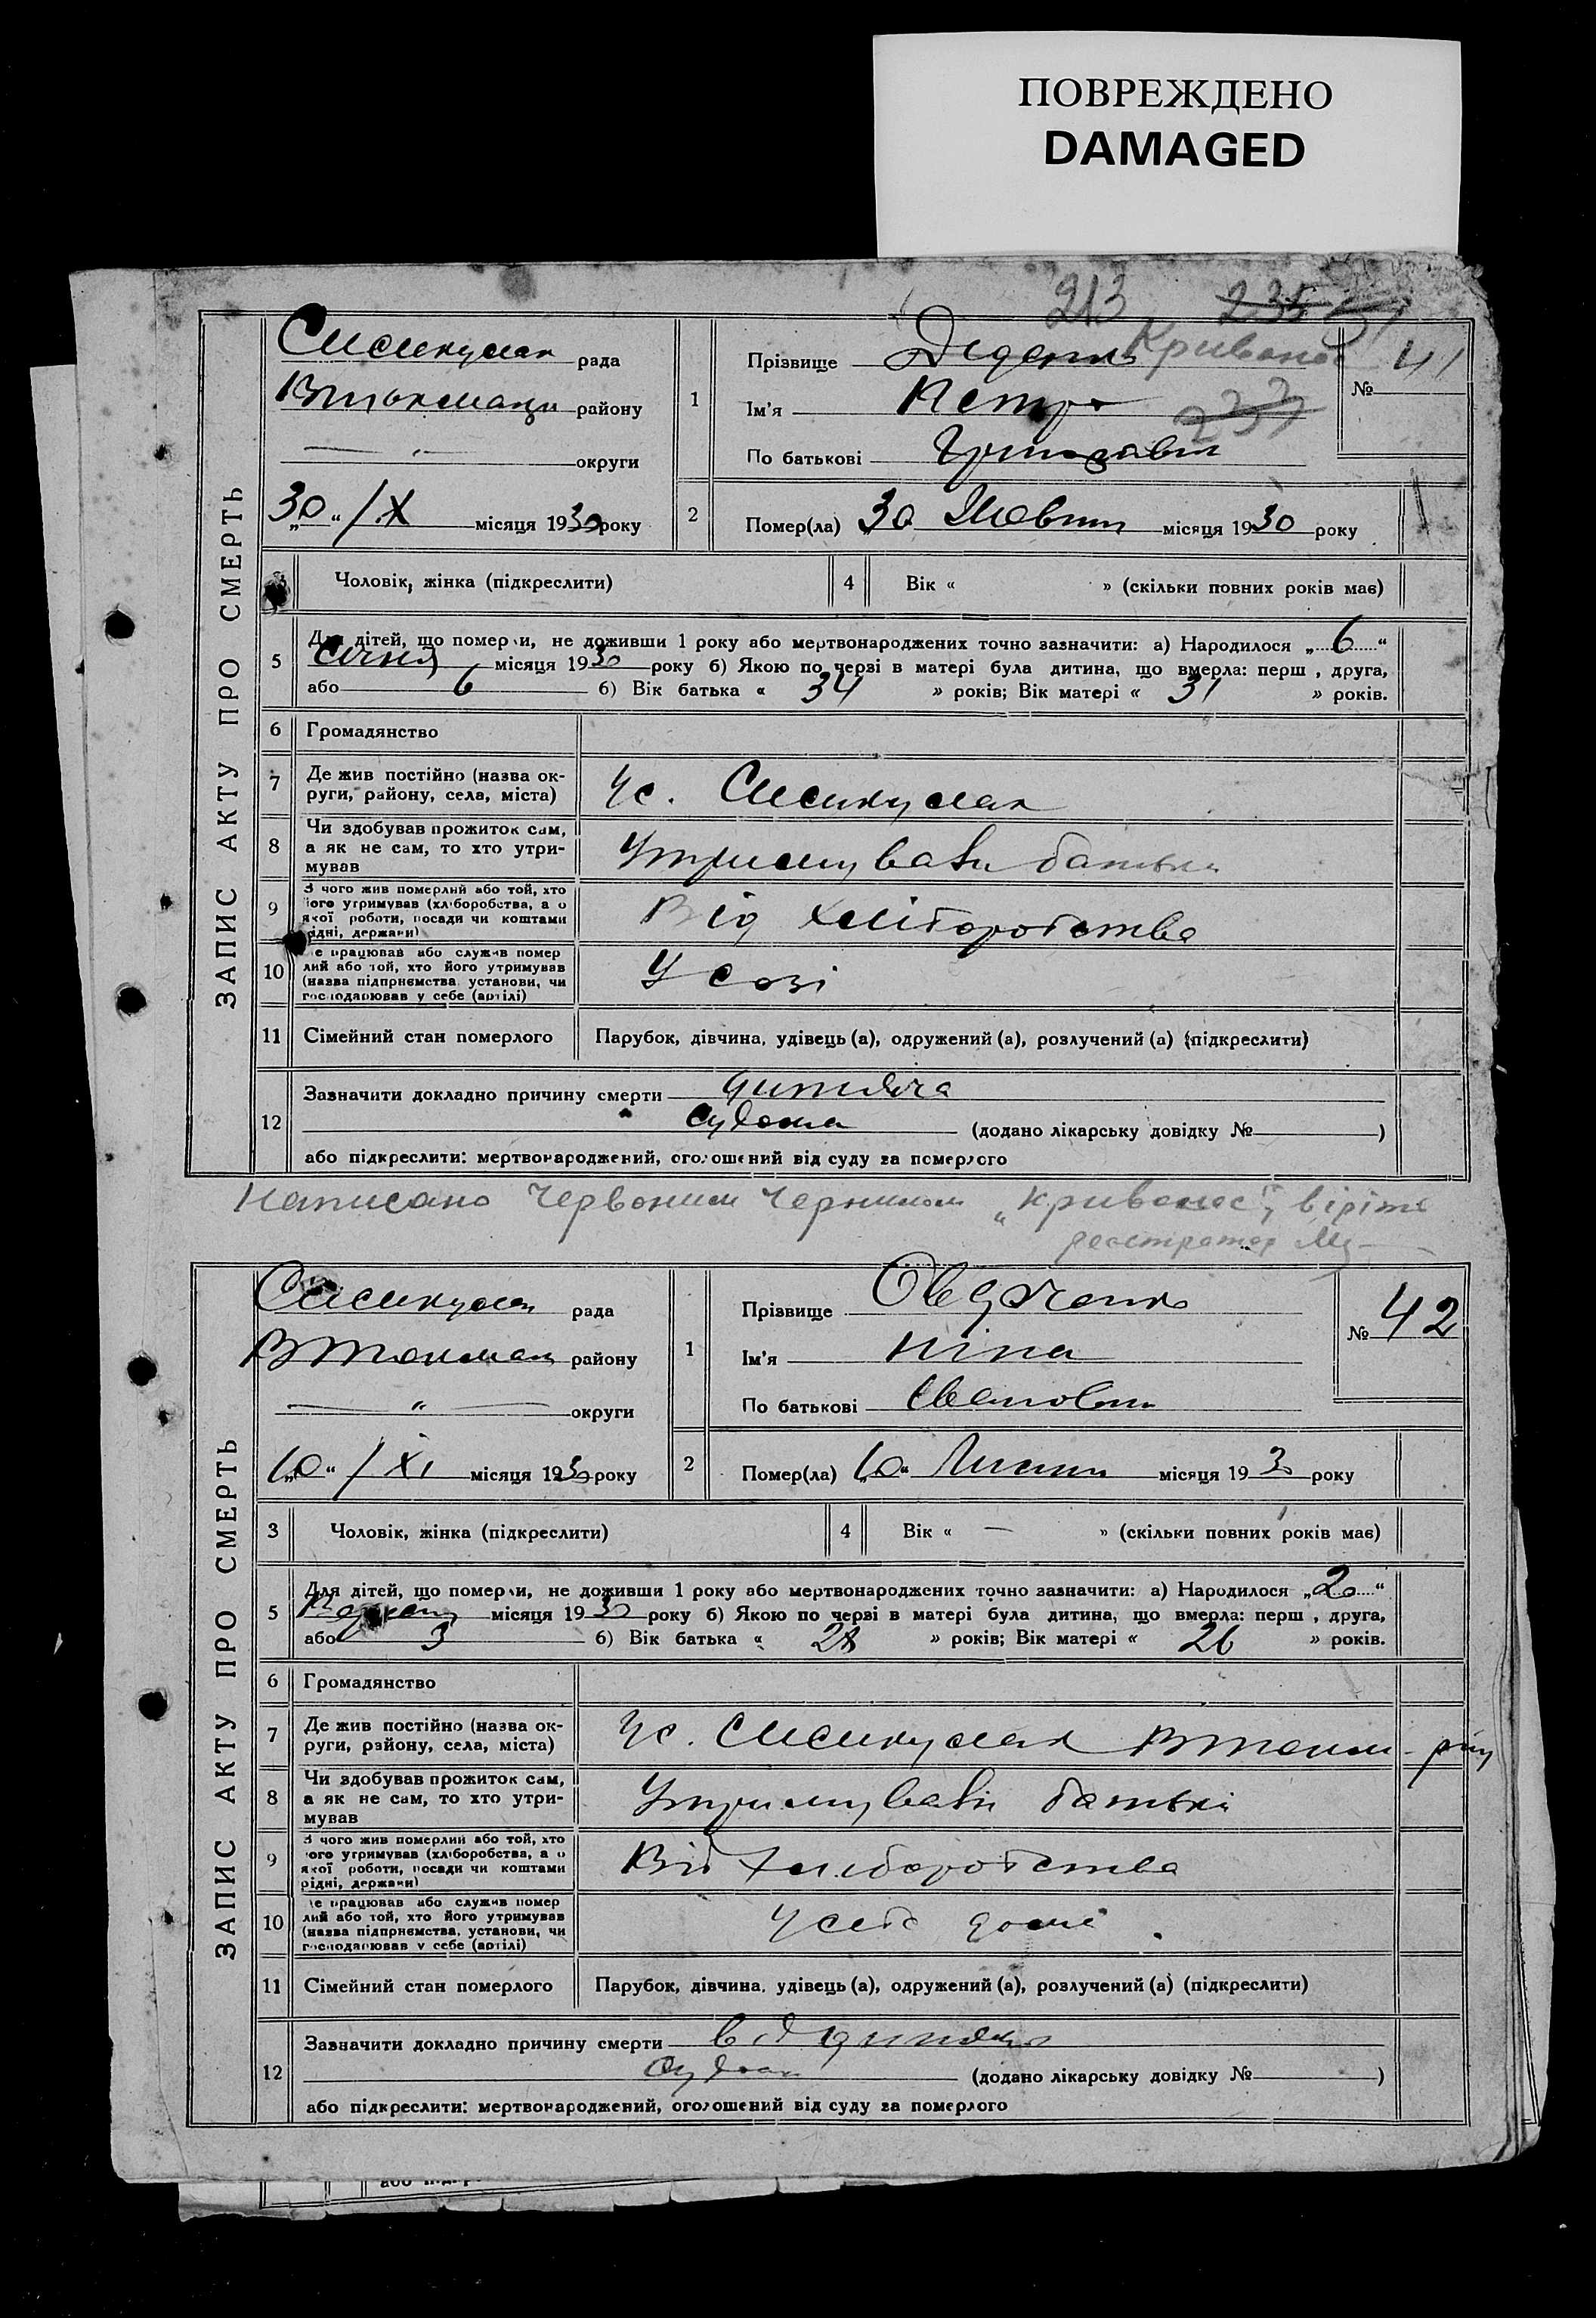 ПОВРЕЖДЕНО
DAMAGED
213 235
ЗАПИС АКТУ ПРО СМЕРТЬ
рада
району
округи
30 “ /X місяця 1930 року
1
Прізвище Кривонос
Ім'я Петро
По батькові
№ 41
237
2
Помер(ла) 30 Жовтня місяця 1930 року
Чоловік, жінка (підкреслити)
4 Вік « » (скільки повних років має)
5 Для дітей, що померли, не доживши 1 року або мертвонароджених точно зазначити: а) Народилося „ 6 “
січня місяця 1930 року б) Якою по черзі в матері була дитина, що вмерла: перш , друга,
або 6 б) Вік батька « 34 » років; Вік матері « 31 » років.
6 Громадянство
7 Де жив постійно (назва ок-
руги, району, села, міста)
У с.
8 Чи здобував прожиток сам,
а як не сам, то хто утри-
мував
Утримували батьки
9 З чого жив померлий або той, хто
його утримував (хліборобства, а о
якої роботи, посади чи коштами
рідні, держави)
Від хліборобства
10 Де працював або служив помер
лий або той, хто його утримував
(назва підприємства, установи, чи
господарював у себе (артілі)
У созі
11 Сімейний стан померлого
Парубок, дівчина, удівець (а), одружений (а), розлучений (а) (підкреслити)
12 Зазначити докладно причину смерти дитяча
судома (додано лікарську довідку № )
або підкреслити: мертвонароджений, оголошений від суду за померлого
Написано Червоним Чернилом „Кривонос", вірітъ
реєстратор
ЗАПИС АКТУ ПРО СМЕРТЬ
рада
В Токмак району
— “ — округи
„10“ /XI місяця 1930 року
1
Прізвище Овдієнко
Ім'я Ніна
По батькові Івановна
№ 42
2
Помер(ла) „10“ місяця 1930 року
3 Чоловік, жінка (підкреслити)
4 Вік « — » (скільки повних років має)
5 Для дітей, що померли, не доживши 1 року або мертвонароджених точно зазначити: а) Народилося „ 20 “
місяця 1930 року б) Якою по черзі в матері була дитина, що вмерла: перш , друга,
або 3 б) Вік батька « 28 » років; Вік матері « 26 » років.
6 Громадянство
7 Де жив постійно (назва ок-
руги, району, села, міста)
У с. В Токм - рну
8 Чи здобував прожиток сам,
а як не сам, то хто утри-
мував
Утримували батькі
9 З чого жив померлий або той, хто
його утримував (хліборобства, а о
якої роботи, посади чи коштами
рідні, держави)
Від хліборобства
10 Де працював або служив помер
лий або той, хто його утримував
(назва підприємства, установи, чи
господарював у себе (артілі)
У себе домі
11 Сімейний стан померлого
Парубок, дівчина, удівець (а), одружений (а), розлучений (а) (підкреслити)
12 Зазначити докладно причину смерти від дитячо
судоми (додано лікарську довідку № )
або підкреслити: мертвонароджений, оголошений від суду за померлого